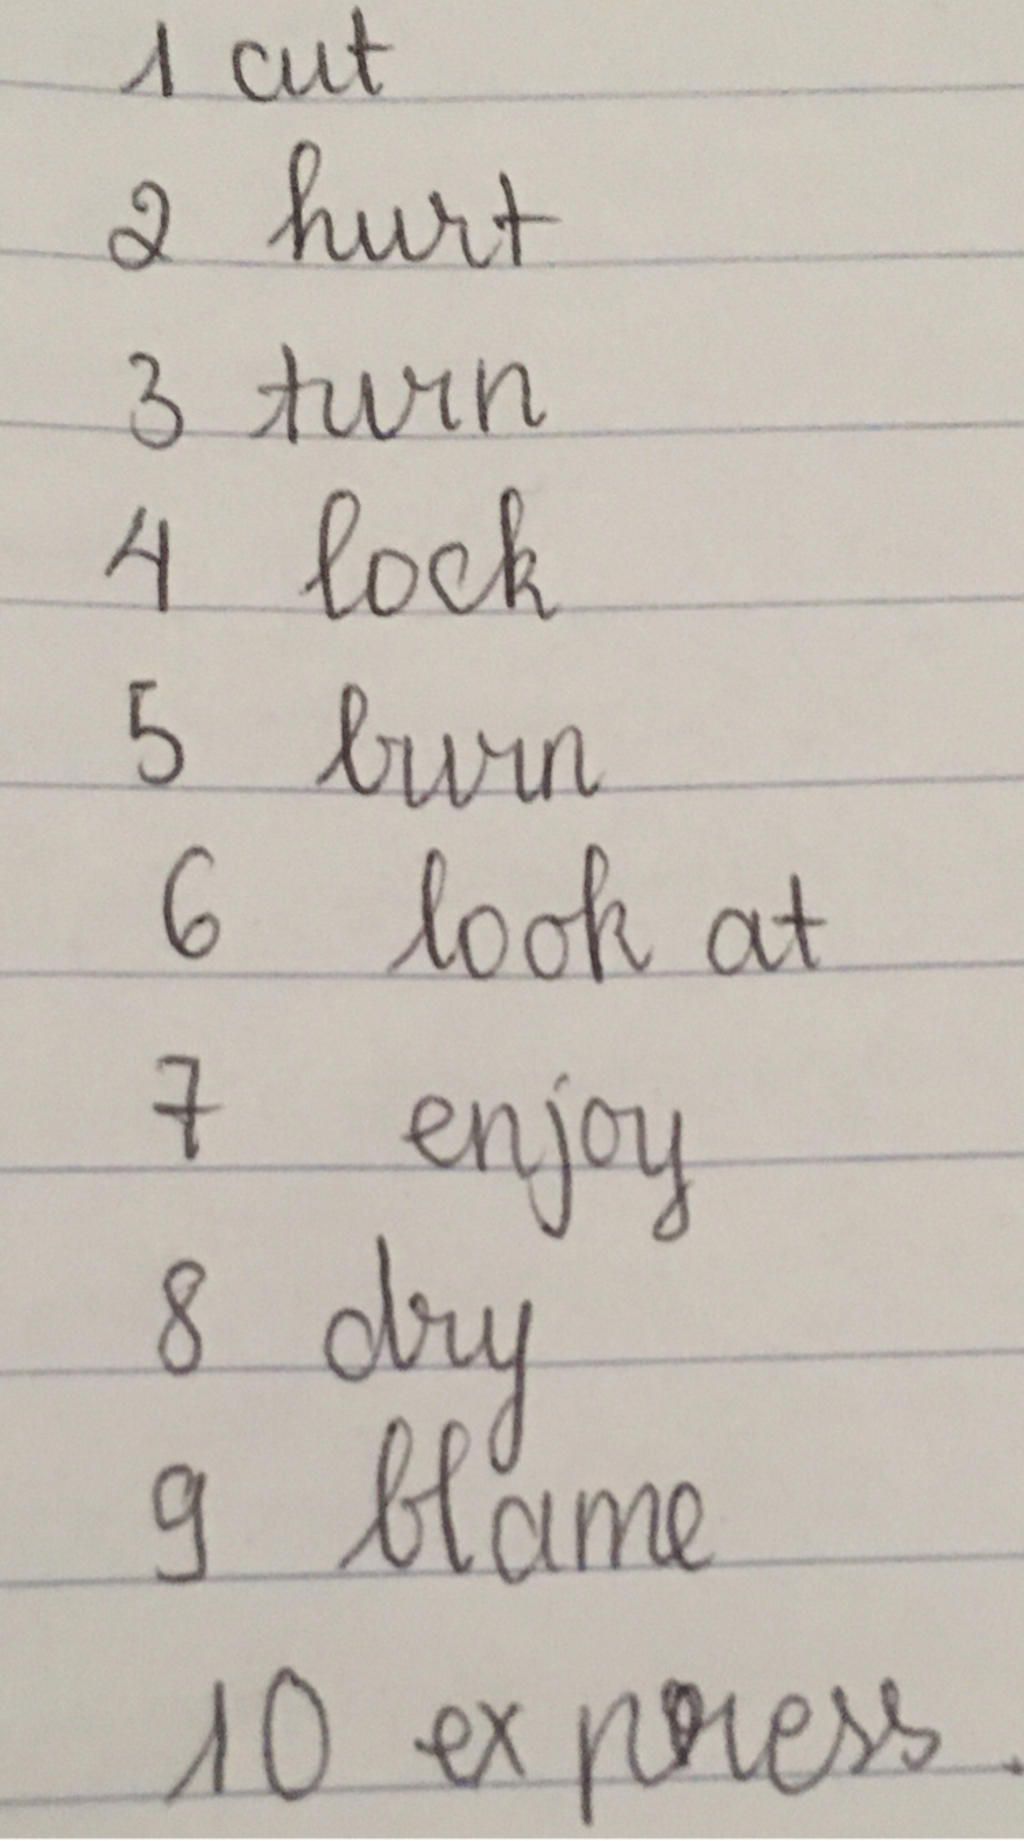 1 cut
2 hurt
3 turn
4 lock
5 burn
6 look at
7 enjoy
8 dry
9 blame
10 express.